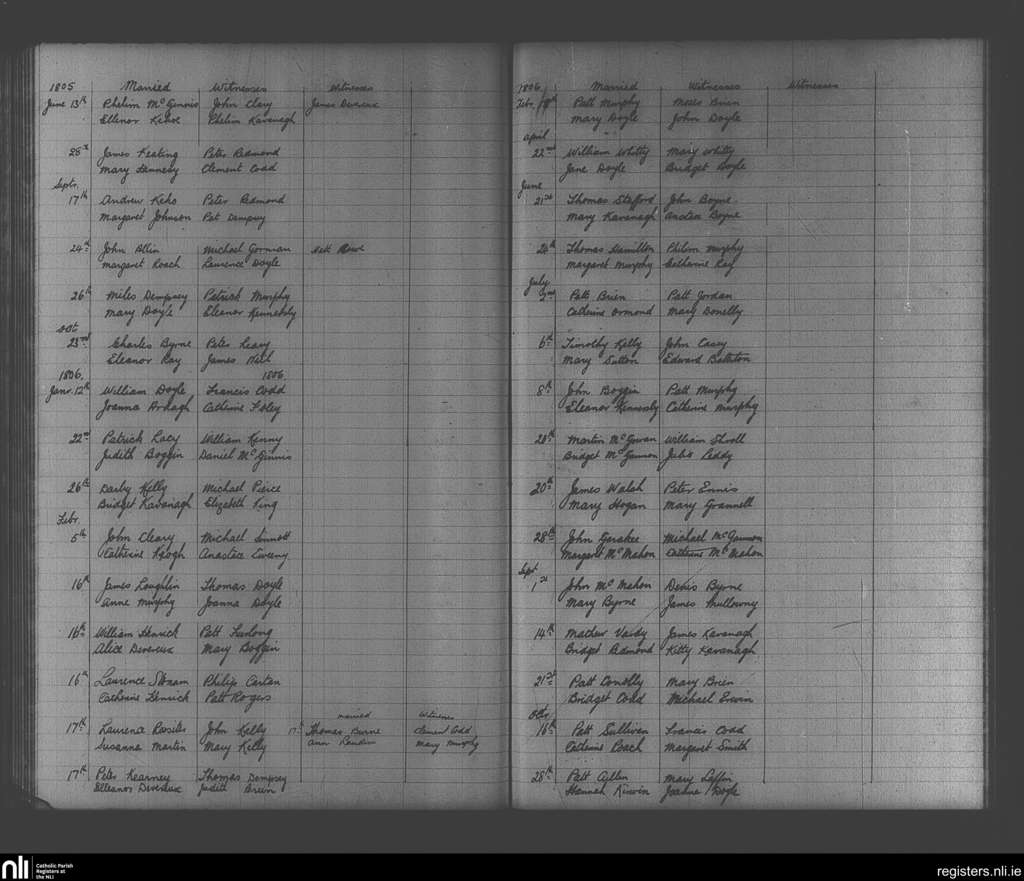 1805 Married Witnesses Witnesses
June 13th Phelim McGinnis John Clary James Devereux
Ellenor Kehoe Phelim Kavanagh
28th James Keating Peter Redmond
Mary Hennesy Clement Codd
Septr.
17th Andrew Keho Peter Redmond
Margaret Johnson Pat Dempsey
24th John Michael Gorman Matt Rowe
Margaret Roach Laurence Doyle
26th Miles Dempsey Patrick Murphy
Mary Doyle Eleanor Kennedy
Oct
23rd Charles Byrne Peter Leary
Eleanor Ray James
1806. 1806.
Janr. 12th William Doyle Francis Codd
Joanna Catherine Foley
22nd Patrick Lacy William Kenny
Judith Boggin Daniel McGinnis
26th Darby Kelly Michael Pierce
Bridget Kavanagh Elizabeth King
Febr.
5th John Cleary Michael Sinnott
Catherine Keogh Anastice Sweeny
16th James Loughlin Thomas Doyle
Anne Murphy Joanna Doyle
16th William Henrick Patt Furlong
Alice Devereux Mary Boggin
16th Laurence Philip Cartan
Catherine Henrick Patt Rogers
married Witnesses
17th Laurence Rositer John Kelly 17th Thomas Burne Clement Codd
Susanna Martin Mary Kelly Ann Mary Murphy
17th Peter Kearney Thomas Dempsey
Elleanor Devereux Judith Brien
1806. Married Witnesses Witnesses
Febr. 18th Patt Murphy Moses Brien
Mary Doyle John Doyle
April
22nd William Whitty Mary Whitty
Jane Doyle Bridget Doyle
June
21st Thomas Stafford John Boyne
Mary Kavanagh Anstice Boyne
24th Thomas Hamilton Philim Murphy
Margaret Murphy Catherine Ray
July
2nd Patt Brien Patt Jordan
Catherine Ormond Mary Donelly
6th Timothy Kelly John Casey
Mary Sutton Edward
8th John Boggin Patt Murphy
Eleanor Kennedy Catherine Murphy
20th Martin McGowan William
Bridget McGannon Julia Leddy
20th James Walsh Peter Ennis
Mary Hogan Mary Grannell
28th John Michael McGannon
Margaret McMahon Catherine McMahon
Sept
1st John McMahon Denis Byrne
Mary Byrne James Mullowny
14th Mathew Vardy James Kavanagh
Bridget Redmond Kitty Kavanagh
21st Patt Conolly Mary Brien
Bridget Codd Michael Erwin
Octr.
16th Patt Sullivan Francis Codd
Catherine Roach Margaret Smith
28th Patt Mary Laffin
Hannah Kirwin Joanna Doyle
nli Catholic Parish
Registers at
the NLI
registers.nli.ie